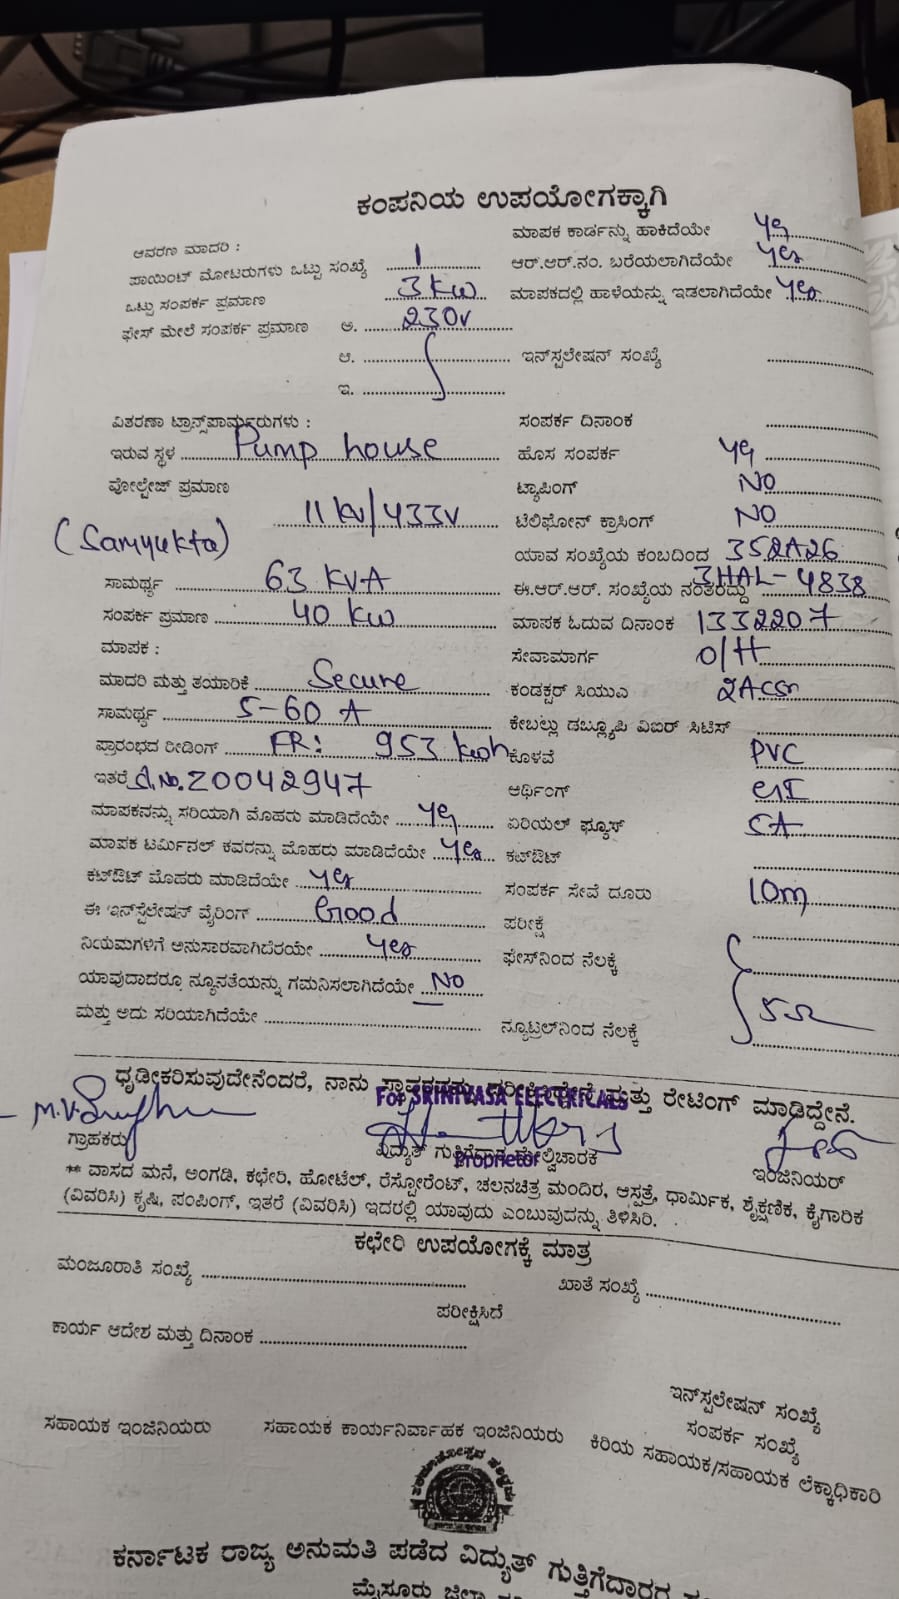 ಕಂಪನಿಯ ಉಪಯೋಗಕ್ಕಾಗಿ
ಆವರಣ ಮಾದರಿ :
ಪಾಯಿಂಟ್ ಮೋಟರುಗಳು ಒಟ್ಟು ಸಂಖ್ಯೆ 1
ಒಟ್ಟು ಸಂಪರ್ಕ ಪ್ರಮಾಣ 3 KW
ಫೇಸ್ ಮೇಲೆ ಸಂಪರ್ಕ ಪ್ರಮಾಣ ಅ. 230V
ಆ.
ಇ.
ವಿತರಣಾ ಟ್ರಾನ್ಸ್‌ಪಾರ್ಮರುಗಳು :
ಇರುವ ಸ್ಥಳ Pump house
ವೋಲ್ಟೇಜ್ ಪ್ರಮಾಣ 11 KV/433V
(Samyukta)
ಸಾಮರ್ಥ್ಯ 63 KVA
ಸಂಪರ್ಕ ಪ್ರಮಾಣ 40 KW
ಮಾಪಕ :
ಮಾದರಿ ಮತ್ತು ತಯಾರಿಕೆ Secure
ಸಾಮರ್ಥ್ಯ 5-60 A
ಪ್ರಾರಂಭದ ರೀಡಿಂಗ್ FR: 953 kwh
ಇತರೆ Sl.No. Z0042947
ಮಾಪಕನನ್ನು ಸರಿಯಾಗಿ ಮೊಹರು ಮಾಡಿದೆಯೇ yes
ಮಾಪಕ ಟರ್ಮಿನಲ್ ಕವರನ್ನು ಮೊಹರು ಮಾಡಿದೆಯೇ yes
ಕಟ್‌ಔಟ್ ಮೊಹರು ಮಾಡಿದೆಯೇ yes
ಈ ಇನ್‌ಸ್ಟೆಲೇಷನ್ ವೈರಿಂಗ್ Good
ನಿಯಮಗಳಿಗೆ ಅನುಸಾರವಾಗಿದೆರಯೇ yes
ಯಾವುದಾದರೂ ನ್ಯೂನತೆಯನ್ನು ಗಮನಿಸಲಾಗಿದೆಯೇ NO
ಮತ್ತು ಅದು ಸರಿಯಾಗಿದೆಯೇ
ಮಾಪಕ ಕಾರ್ಡನ್ನು ಹಾಕಿದೆಯೇ yes
ಆರ್.ಆರ್.ನಂ. ಬರೆಯಲಾಗಿದೆಯೇ yes
ಮಾಪಕದಲ್ಲಿ ಹಾಳೆಯನ್ನು ಇಡಲಾಗಿದೆಯೇ yes
ಇನ್‌ಸ್ಟಲೇಷನ್ ಸಂಖ್ಯೆ
ಸಂಪರ್ಕ ದಿನಾಂಕ
ಹೊಸ ಸಂಪರ್ಕ yes
ಟ್ಯಾಪಿಂಗ್ NO
ಟೆಲಿಫೋನ್ ಕ್ರಾಸಿಂಗ್ NO
ಯಾವ ಸಂಖ್ಯೆಯ ಕಂಬದಿಂದ 352A26
ಈ.ಆರ್.ಆರ್. ಸಂಖ್ಯೆಯ ನಂತರದ್ದು 3HAL-4838
ಮಾಪಕ ಓದುವ ದಿನಾಂಕ 1332207
ಸೇವಾಮಾರ್ಗ O/H
ಕಂಡಕ್ಟರ್ ಸಿಯುಎ 2Acsr
ಕೇಬಲ್ಲು ಡಬ್ಲ್ಯೂಪಿ ವಿಐರ್ ಸಿಟಿಸ್
ಕೊಳವೆ PVC
ಆರ್ಥಿಂಗ್ GI
ಏರಿಯಲ್ ಫ್ಯೂಸ್ 5A
ಕಟ್‌ಔಟ್
ಸಂಪರ್ಕ ಸೇವೆ ದೂರು 10m
ಪರೀಕ್ಷೆ
ಫೇಸ್‌ನಿಂದ ನೆಲಕ್ಕೆ
ನ್ಯೂಟ್ರಲ್‌ನಿಂದ ನೆಲಕ್ಕೆ 5Ω
ಧೃಡೀಕರಿಸುವುದೇನೆಂದರೆ, ನಾನು ಮತ್ತು ರೇಟಿಂಗ್ ಮಾಡಿದ್ದೇನೆ.
For SRINIVASA ELECTRICALS
ಗ್ರಾಹಕರು ವಿದ್ಯುತ್ ಗುತ್ತಿಗೆದಾರ ಮೇಲ್ವಿಚಾರಕ ಇಂಜಿನಿಯರ್
Proprietor
** ವಾಸದ ಮನೆ, ಅಂಗಡಿ, ಕಛೇರಿ, ಹೋಟೆಲ್, ರೆಸ್ಟೋರೆಂಟ್, ಚಲನಚಿತ್ರ ಮಂದಿರ, ಆಸ್ಪತ್ರೆ, ಧಾರ್ಮಿಕ, ಶೈಕ್ಷಣಿಕ, ಕೈಗಾರಿಕ
(ವಿವರಿಸಿ) ಕೃಷಿ, ಪಂಪಿಂಗ್, ಇತರೆ (ವಿವರಿಸಿ) ಇದರಲ್ಲಿ ಯಾವುದು ಎಂಬುವುದನ್ನು ತಿಳಿಸಿರಿ.
ಕಛೇರಿ ಉಪಯೋಗಕ್ಕೆ ಮಾತ್ರ
ಮಂಜೂರಾತಿ ಸಂಖ್ಯೆ ಖಾತೆ ಸಂಖ್ಯೆ
ಪರೀಕ್ಷಿಸಿದೆ
ಕಾರ್ಯ ಆದೇಶ ಮತ್ತು ದಿನಾಂಕ
ಇನ್‌ಸ್ಟಲೇಷನ್ ಸಂಖ್ಯೆ
ಸಂಪರ್ಕ ಸಂಖ್ಯೆ
ಸಹಾಯಕ ಇಂಜಿನಿಯರು ಸಹಾಯಕ ಕಾರ್ಯನಿರ್ವಾಹಕ ಇಂಜಿನಿಯರು ಕಿರಿಯ ಸಹಾಯಕ/ಸಹಾಯಕ ಲೆಕ್ಕಾಧಿಕಾರಿ
ಕರ್ನಾಟಕ ರಾಜ್ಯ ಅನುಮತಿ ಪಡೆದ ವಿದ್ಯುತ್ ಗುತ್ತಿಗೆದಾರರ
ಮೈಸೂರು ಜಿಲ್ಲಾ